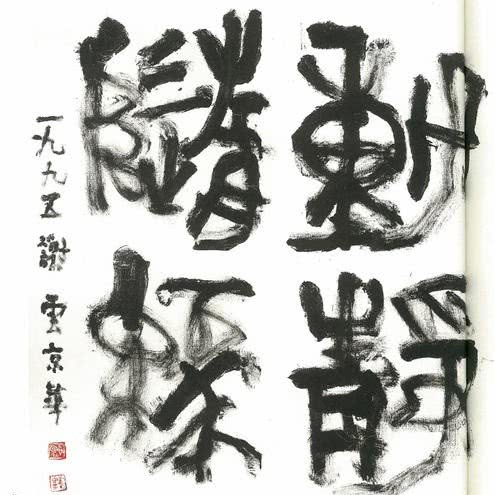 動靜
隨緣
一九九五謝雲京華